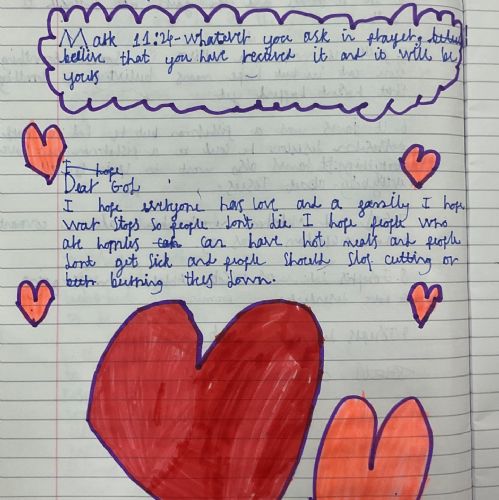 Mark 11:24-whatever you ask in prayer,
beelive that you have received it and it will be
yours
I hope
Dear God
I hope everyone has love and a family I hope
war stops so people dont die I hope people who
are hopnles can have hot meals and people
dont get sick and people should stop cutting or
burning thes down.